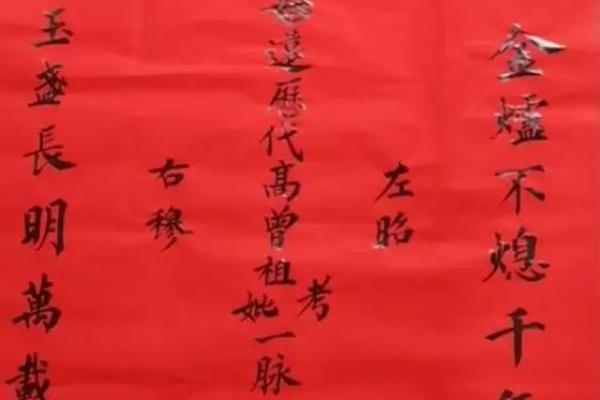 金爐不熄千年
左昭
始遠歷代高曾祖考妣一脉
右穆
玉盞長明萬載